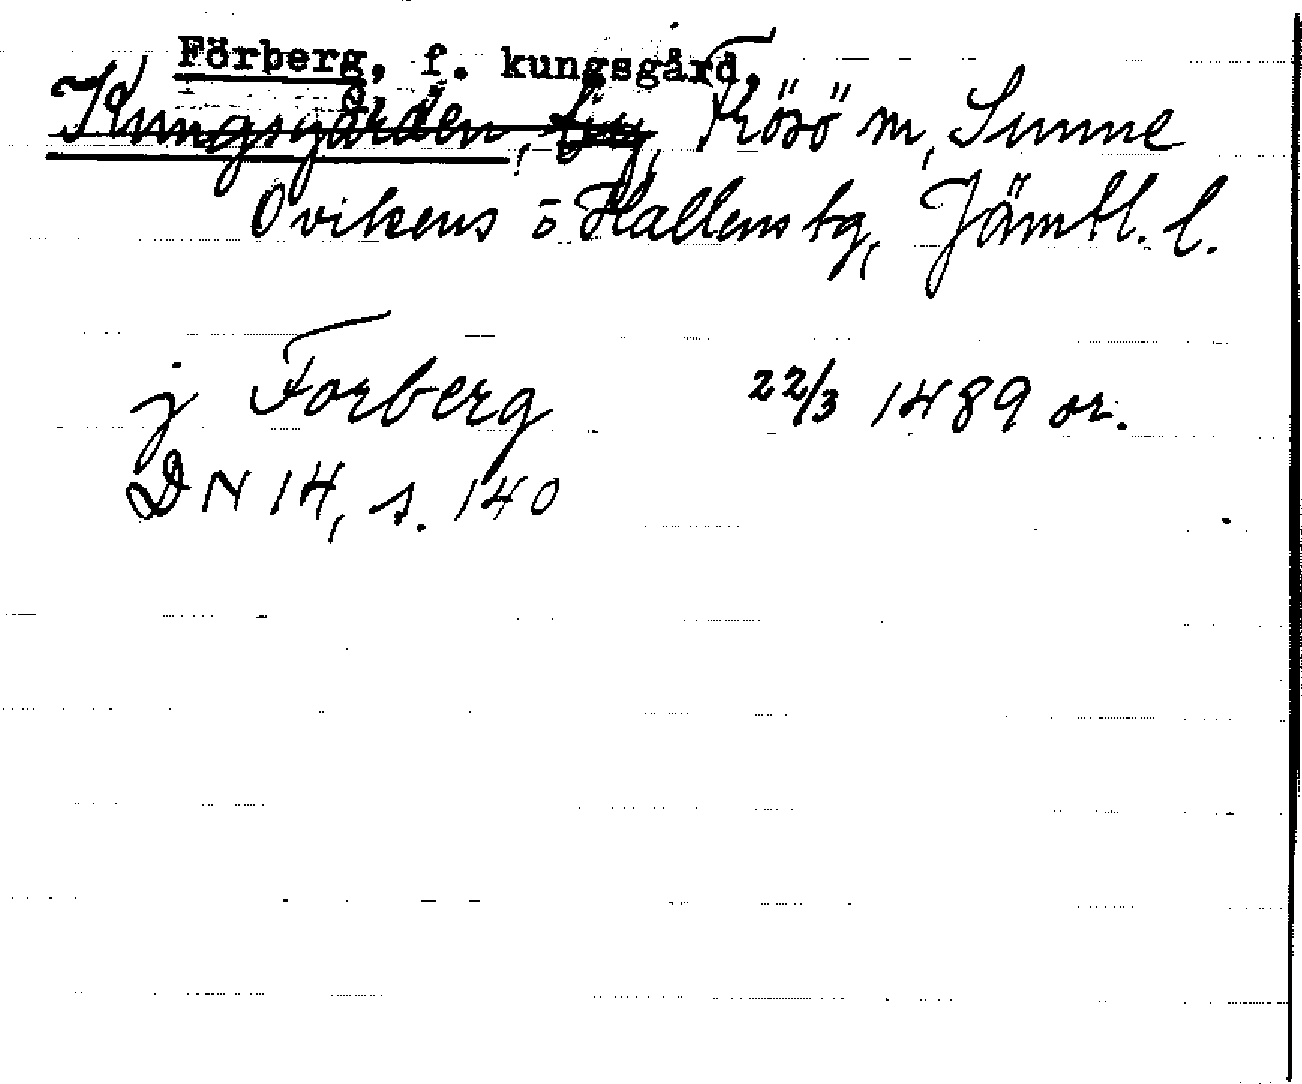 Förberg, f. kungsgård,
Kungsgården, Frösö sn, Sunne
Ovikens o Hallens tg, Jämtl. l.
j Forberg 22/3 1489 or.
DN 14, s. 140